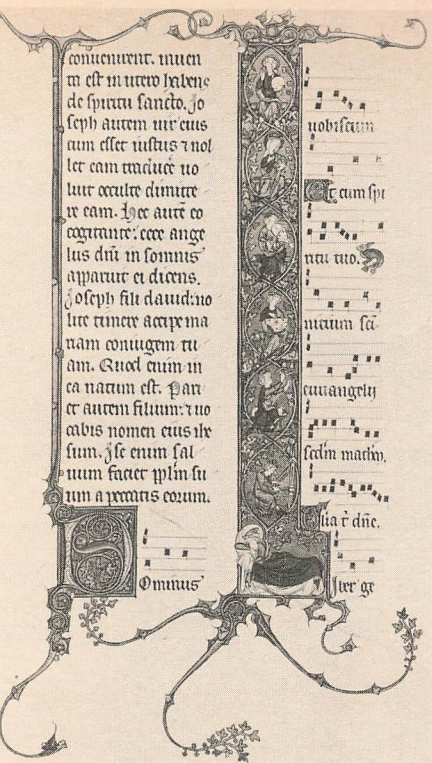 conuenirent. inuen
ta est in utero habens
de spiritu sancto. Jo
seph autem uir eius
cum esset iustus ⁊ nol
let eam traducere uo
luit occulte dimitte
re eam. Hec autē eo
cogitante: ecce ange
lus dñi in somnis
apparuit ei dicens.
Joseph fili dauid: no
lite timere accipe ma
riam coniugem tu
am. Quod enim in
ea natum est. Pari
et autem filium: ⁊ uo
cabis nomen eius ihe
sum. Ipse enim sal
uum faciet pplm su
um a peccatis eorum.
Dominus
uobiscum
Et cum spi
ritu tuo.
nicium sci
euuangelij
scdm mathm.
Glia t̄ dñe.
Liber ge